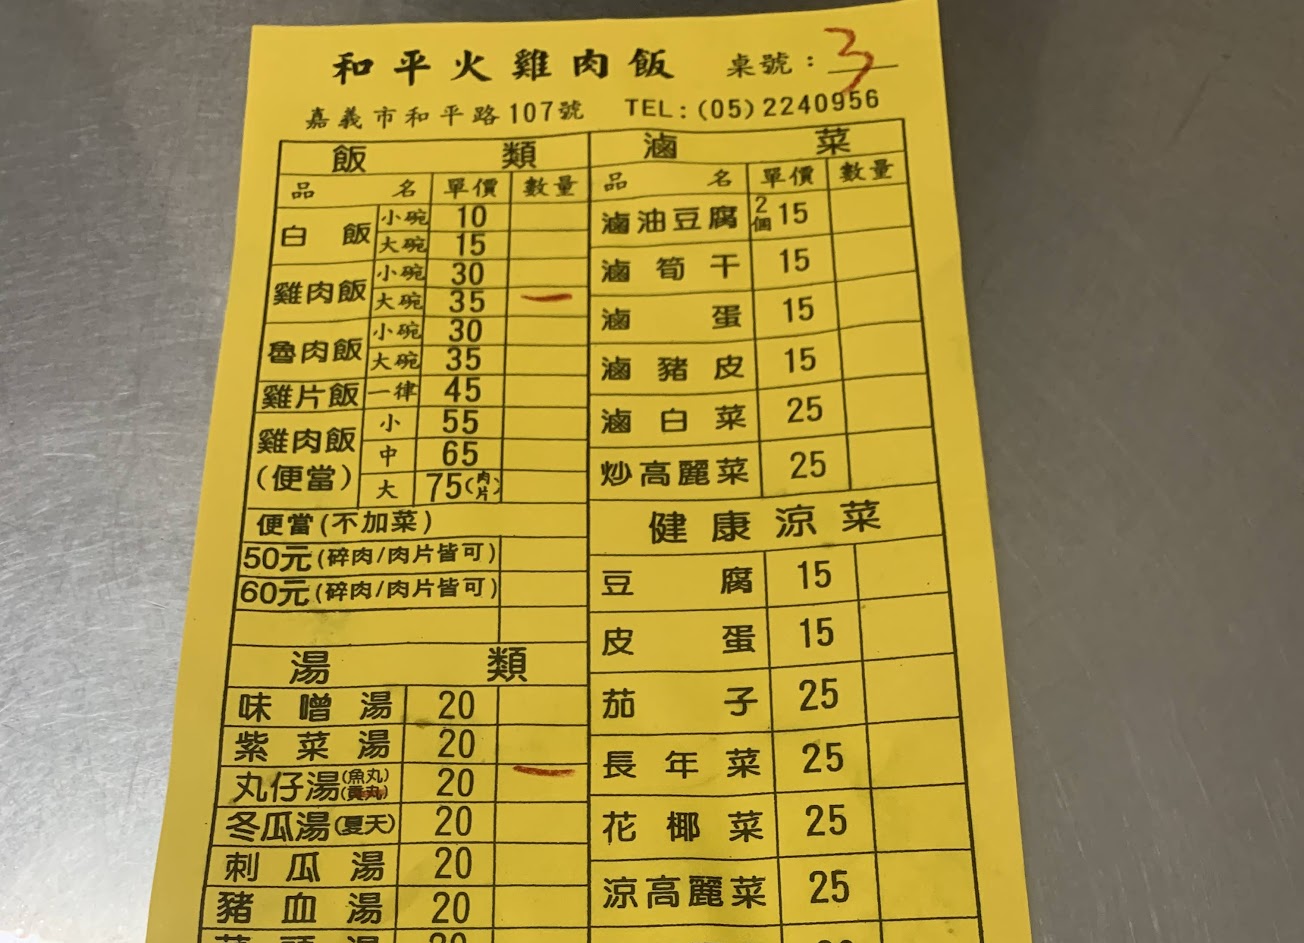 和平火雞肉飯 桌號：3
嘉義市和平路107號 TEL:(05)2240956
飯類
品名 單價 數量
白飯 小碗 10
大碗 15
雞肉飯 小碗 30
大碗 35 一
魯肉飯 小碗 30
大碗 35
雞片飯 一律 45
雞肉飯(便當) 小 55
中 65
大 75(肉片)
便當(不加菜)
50元(碎肉/肉片皆可)
60元(碎肉/肉片皆可)
湯類
味噌湯 20
紫菜湯 20
丸仔湯(魚丸)(貢丸) 20 一
冬瓜湯(夏天) 20
刺瓜湯 20
豬血湯 20
滷菜
品名 單價 數量
滷油豆腐 2個15
滷筍干 15
滷蛋 15
滷豬皮 15
滷白菜 25
炒高麗菜 25
健康涼菜
豆腐 15
皮蛋 15
茄子 25
長年菜 25
花椰菜 25
涼高麗菜 25